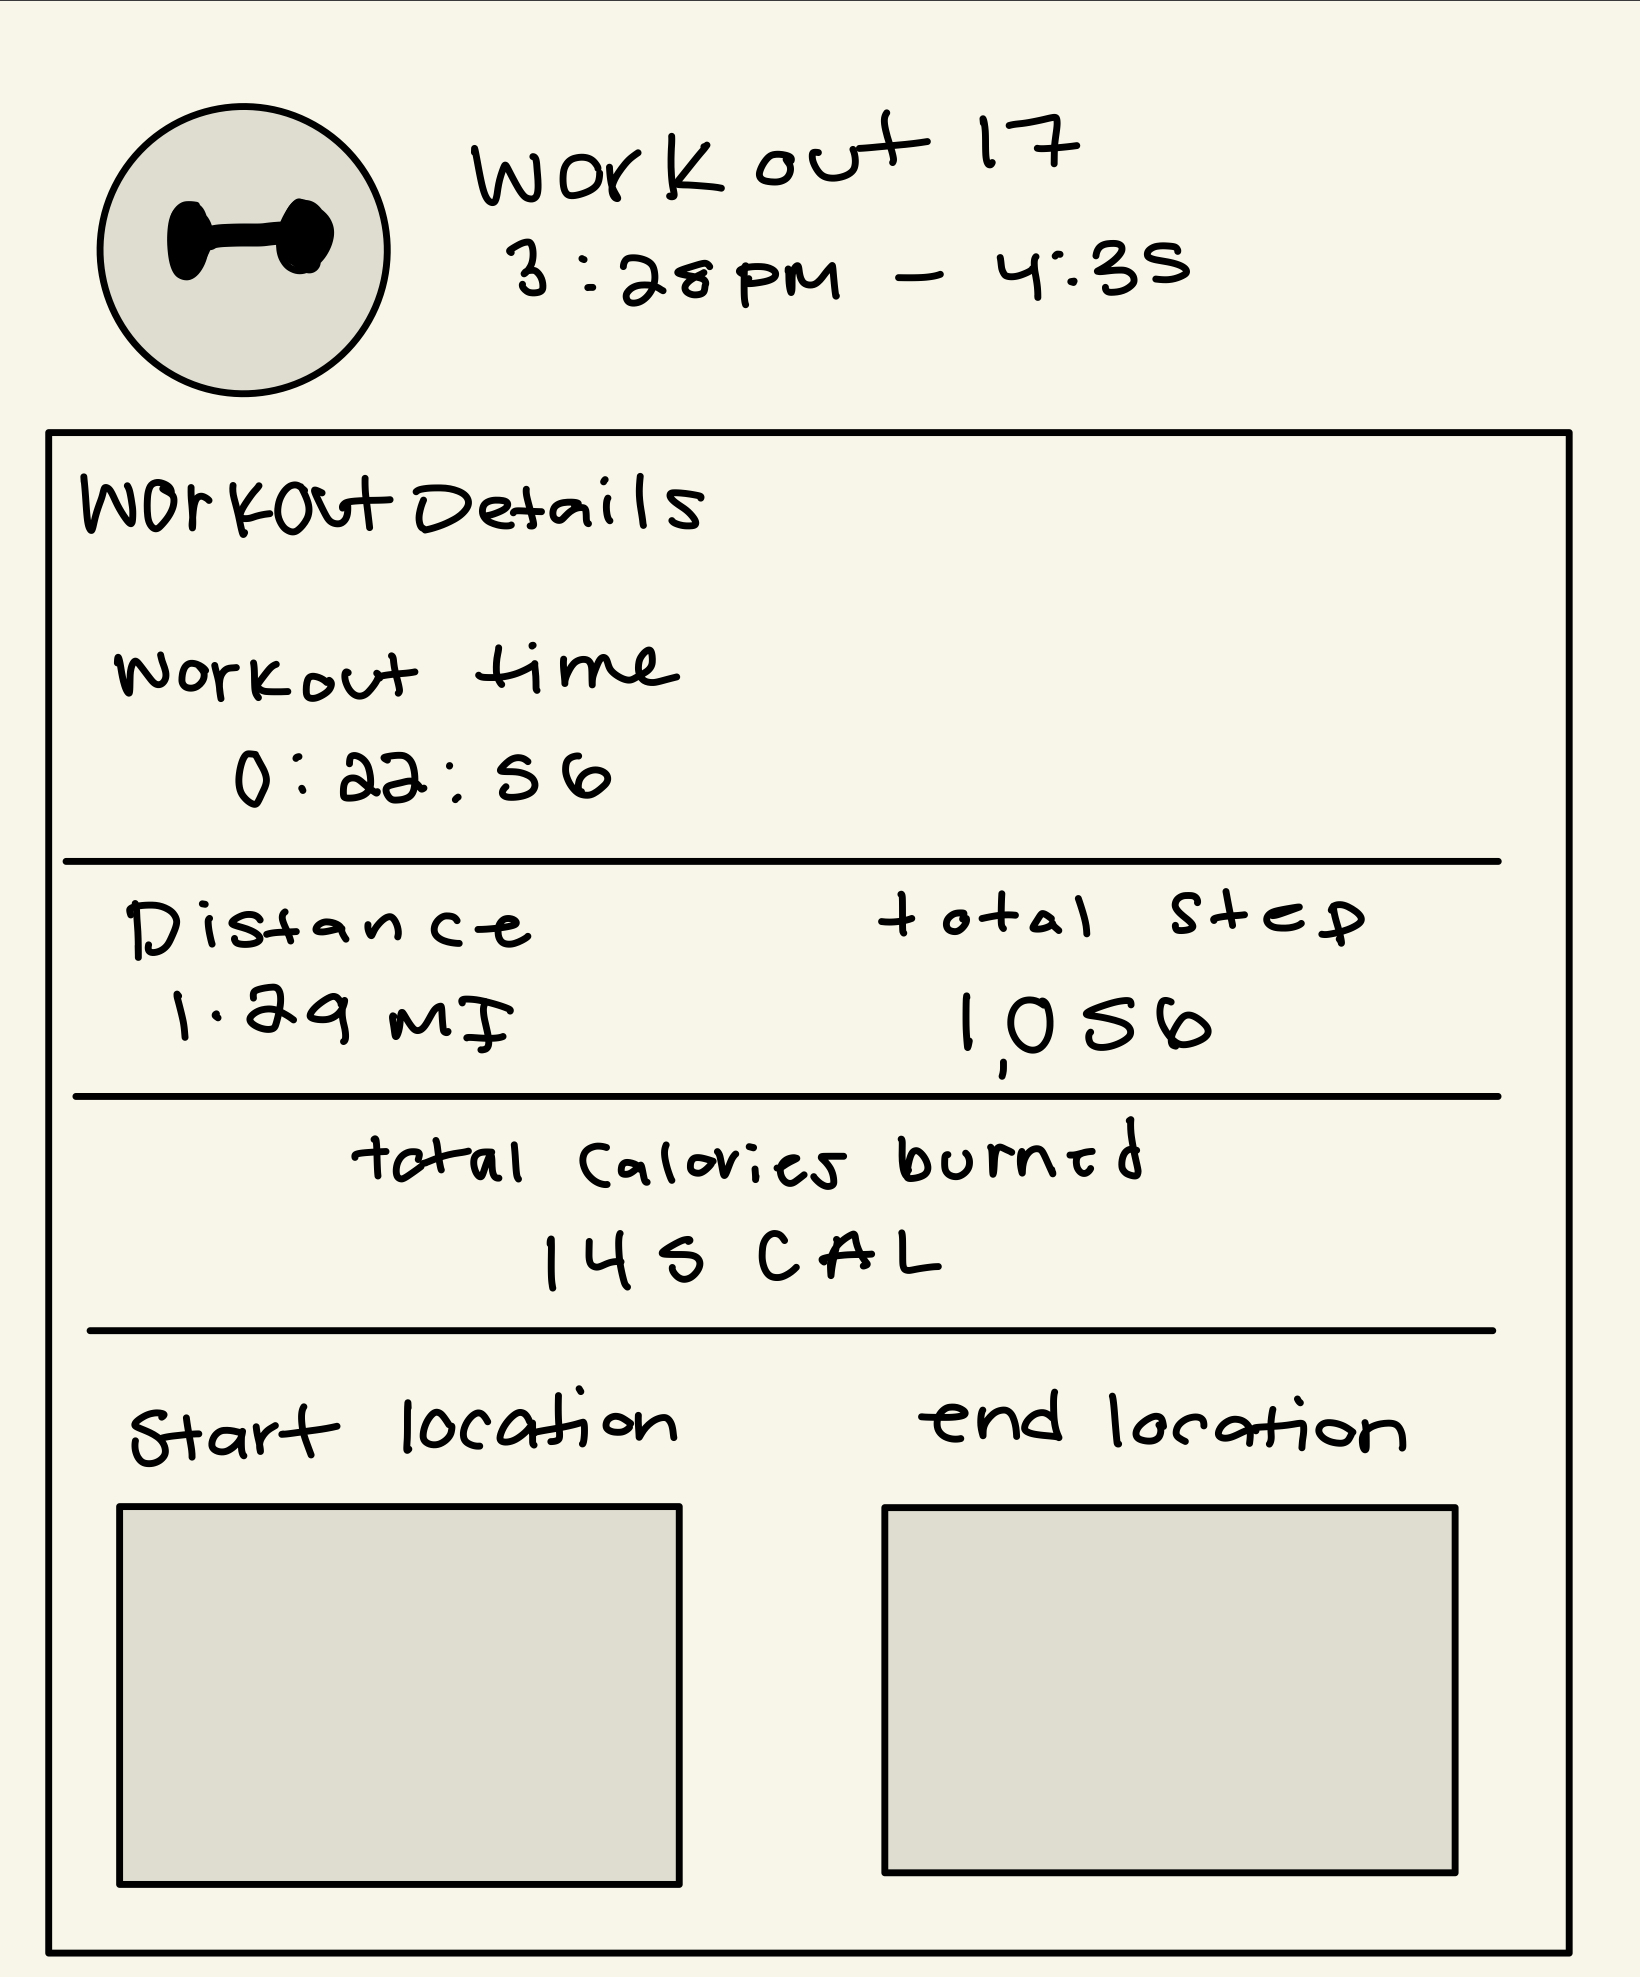 Workout 17
3:28pm - 4:35
Workout Details
Workout time
0:22:56
Distance
total step
1.29 MI
1,056
total Calories burned
145 CAL
Start location
end location